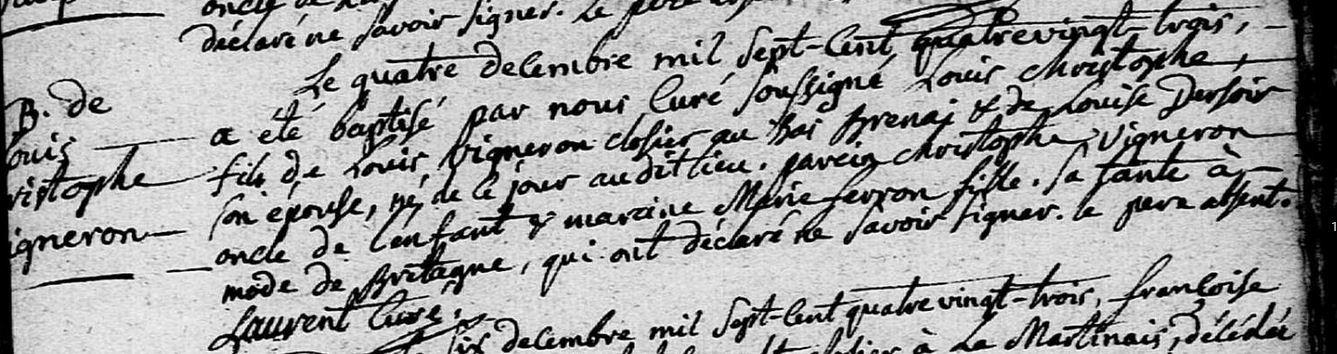 déclaré ne savoir signer. Le pere
Le quatre decembre mil sept-cent quatrevingt-trois,
B. de
ouis
ristophe
igneron
a été baptisé par nous curé soussigné Louis christophe,
fils de Louis Vigneron closier au Bas Brenai & de Louise Dersoir
son épouse, né de ce jour audit lieu. parein christophe Vigneron
oncle de l'enfant & mareine Marie ferron fille. sa tante à
mode de Bretagne, qui ont déclaré ne savoir signer. le pere absent.
Laurent Curé.
six decembre mil sept-cent quatrevingt-trois, françoise
closier à La Martinais, décédée